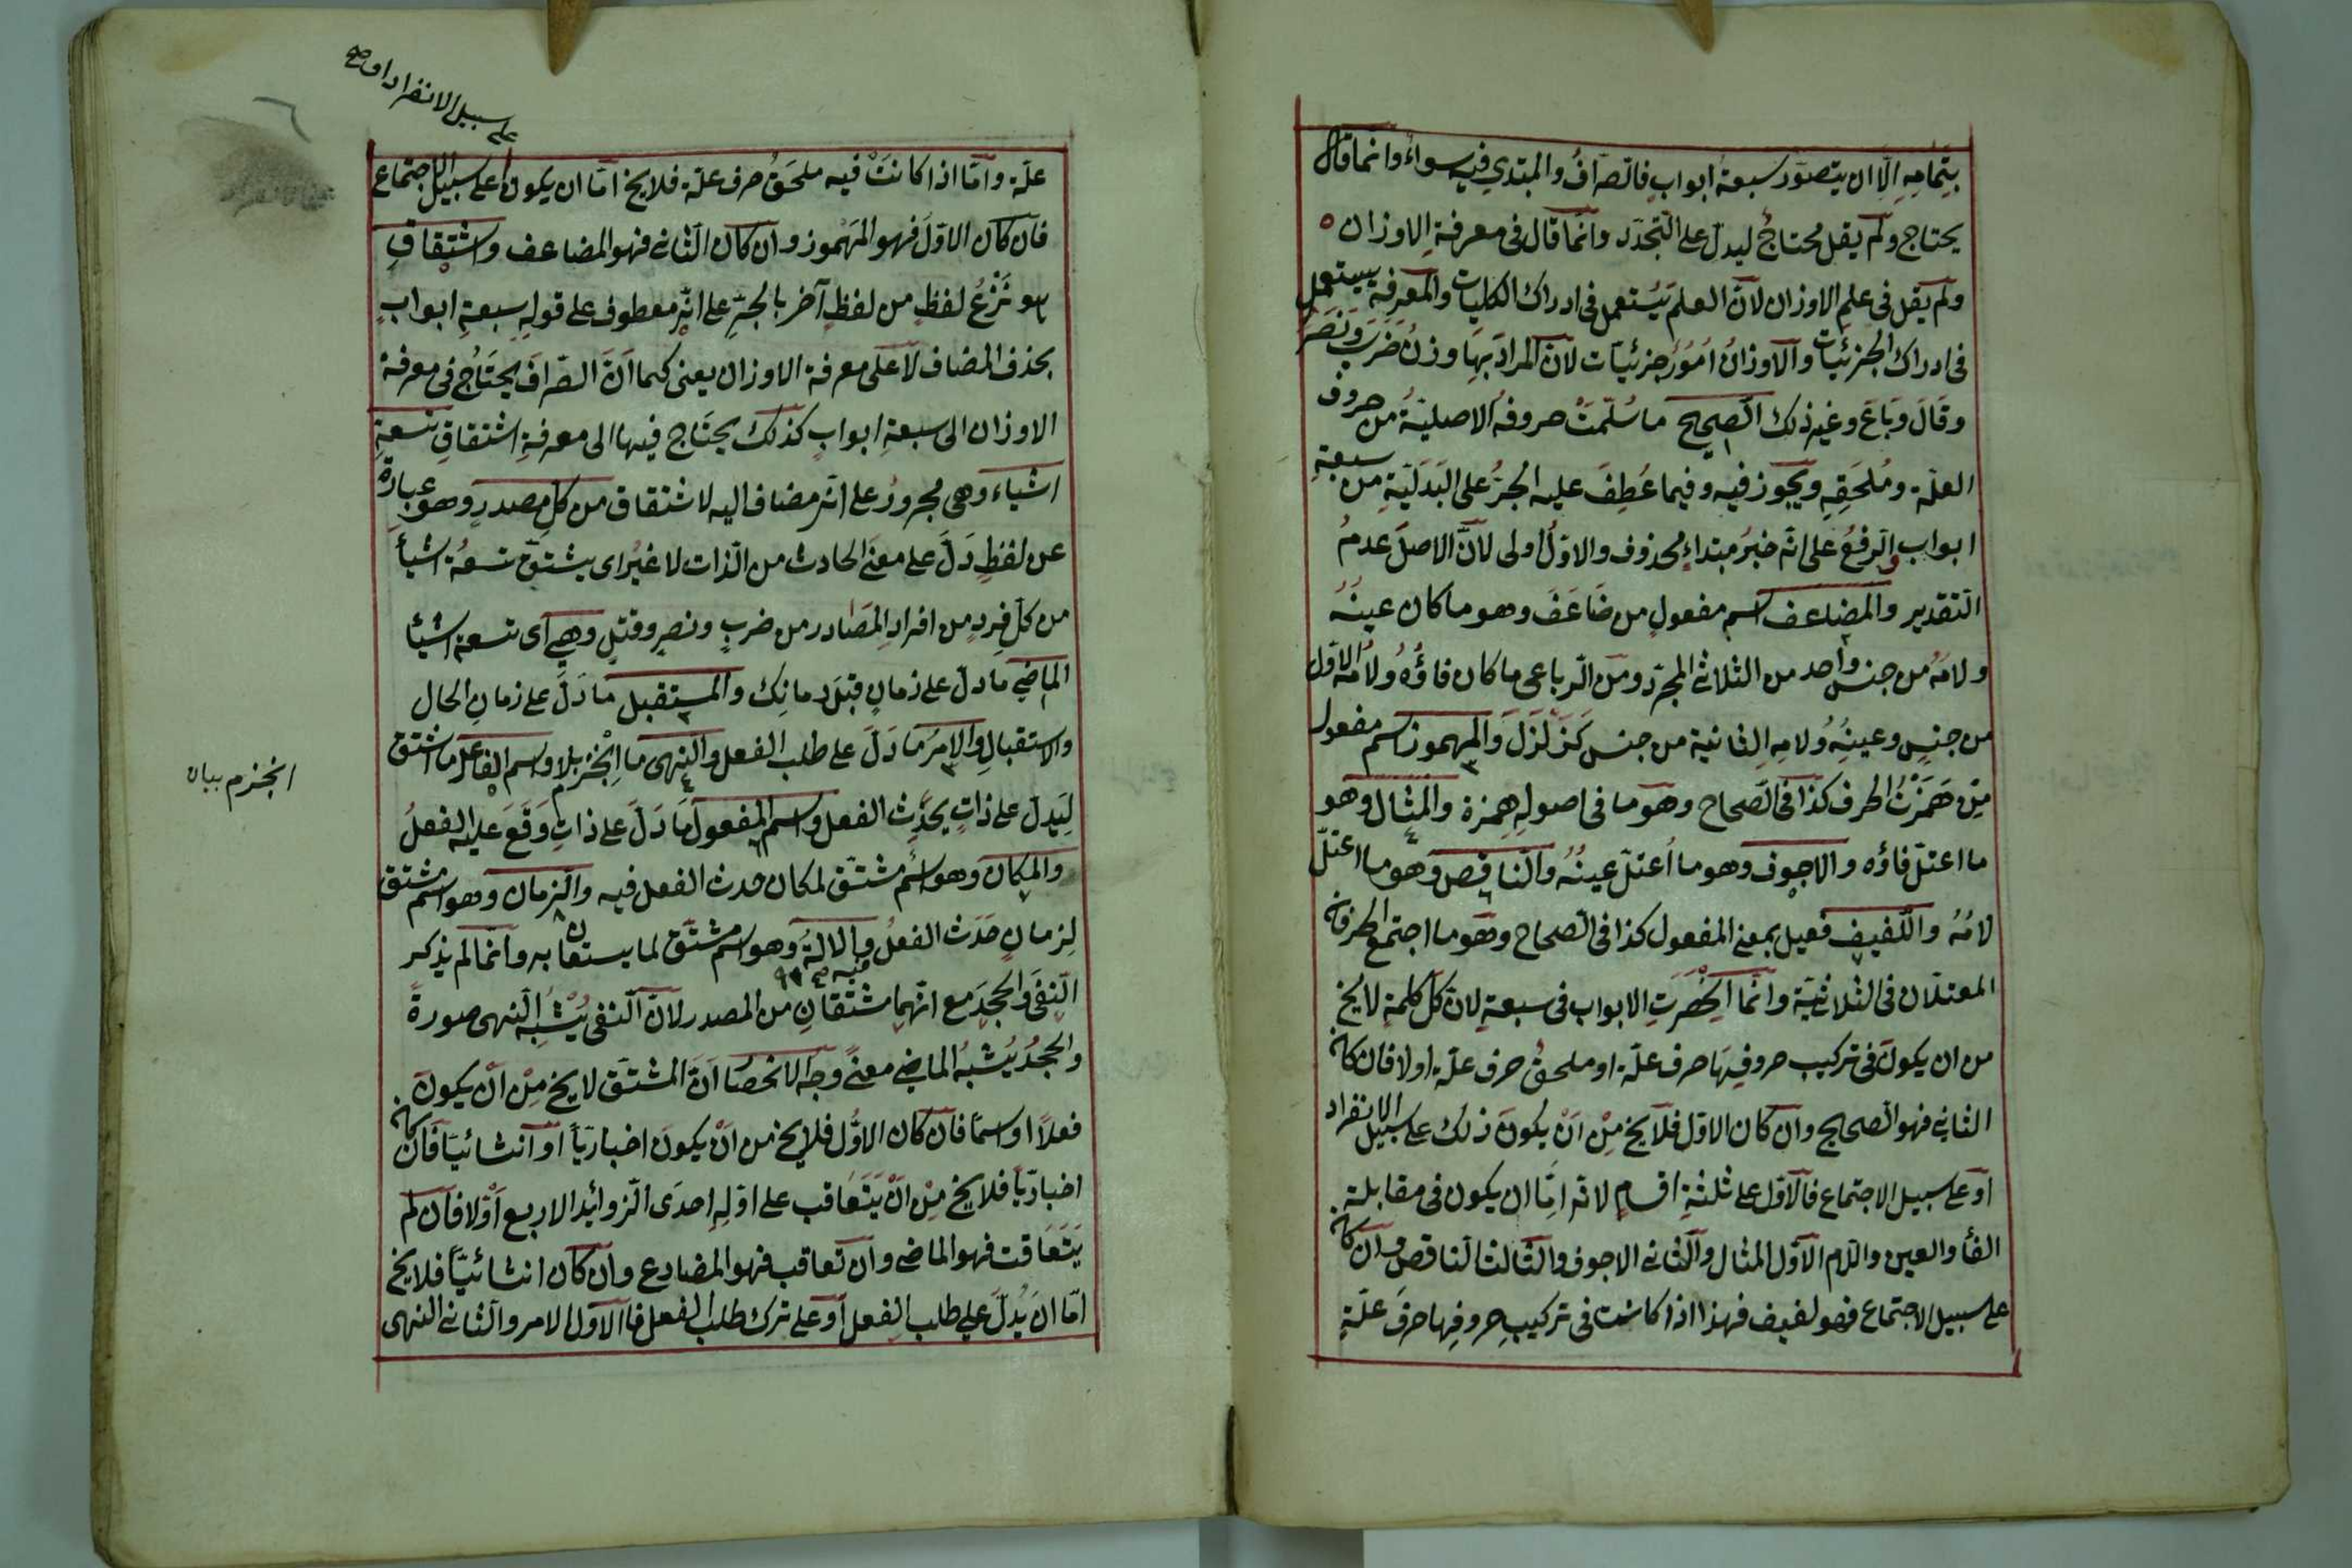 بتمامه الا ان يتصور سبعة ابواب فالصراف والمبتدي فيه سواء وانما قال
يحتاج ولم يقل محتاج ليدل على التجدد وانما قال فى معرفة الاوزان
ولم يقل فى علم الاوزان لان العلم يستعمل فى ادراك الكليات والمعرفة يستعمل
فى ادراك الجزئيات والاوزان امور جزئيات لان المراد بها وزن ضرب ونصر
وقال وباع وغير ذلك الصحيح ما سلمت حروفه الاصلية من حروف
العلة وملحقه ويجوز فيه وفيما عطف عليه الجر على البدلية من سبعة
ابواب والرفع على انه خبر مبتداء محذوف والاول اولى لان الاصل عدم
التقدير والمضاعف اسم مفعول من ضاعف وهو ما كان عينه
ولامه من جنس واحد من الثلاثى المجرد ومن الرباعى ما كان فاؤه ولامه الاول
من جنس وعينه ولامه الثانية من جنس كزلزل والمهموز اسم مفعول
من همزت الحرف كذا فى الصحاح وهو ما فى اصوله همزة والمثال وهو
ما اعتل فاؤه والاجوف وهو ما اعتل عينه والناقص وهو ما اعتل
لامه واللفيف فعيل بمعنى المفعول كذا فى الصحاح وهو ما اجتمع الحرفان
المعتلان فى الثلاثية وانما انحصرت الابواب فى سبعة لان كل كلمة لا يخ
من ان يكون فى تركيب حروفها حرف علة او ملحق حرف علة او لا فان كان
الثانى فهو الصحيح وان كان الاول فلا يخ من ان يكون ذلك على سبيل الانفراد
او على سبيل الاجتماع فالاول على ثلثة اقسام لانه اما ان يكون فى مقابلة
الفأ والعين واللام الاول المثال والثانى الاجوف والثالث الناقص وان كان
على سبيل الاجتماع فهو لفيف فهذا اذا كانت فى تركيب حروفها حرف علة
على سبيل الانفراد او صح
علة واما اذا كانت فيه ملحق حرف علة فلا يخ اما ان يكون على سبيل الاجتماع
فان كان الاول فهو المهموز وان كان الثانى فهو المضاعف واشتقاق
هو نزع لفظ من لفظ آخر بالجر على انه معطوف على قوله سبعة ابواب
بحذف المضاف لا على معرفة الاوزان يعنى كما ان الصراف يحتاج فى معرفة
الاوزان الى سبعة ابواب كذلك يحتاج فيها الى معرفة اشتقاق تسعة
اشياء وهى مجرور على انه مضاف اليه لاشتقاق من كل مصدر وهو عبارة
عن لفظ دل على معنى الحادث من الذات لا غير اى يشتق تسعة اشيأ
من كل فرد من افراد المصادر من ضرب ونصر وقتل وهى اى تسعة اشيأ
الماضى ما دل على زمان قبل زمانك والمستقبل ما دل على زمان الحال
والاستقبال والامر ما دل على طلب الفعل والنهى ما انجزم بلا واسم الفاعل ما اشتق
انجزم بيان
ليدل على ذات يحدث الفعل واسم المفعول ما دل على ذات وقع عليه الفعل
والمكان وهو اسم مشتق لمكان حدث الفعل فيه والزمان وهو اسم مشتق
لزمان حدث الفعل فيه صح والالة وهو اسم مشتق لما يستعان به وانما لم يذكر
النفى والجحد مع انهما مشتقان من المصدر لان النفى يشبه النهى صورة
والجحد يشبه الماضى معنى وجه الانحصار ان المشتق لا يخ من ان يكون
فعلا او اسما فان كان الاول فلا يخ من ان يكون اخباريا او انشائيا فان كان
اخباريا فلا يخ من ان يتعاقب على اوله احدى الزوائد الاربع او لا فان لم
يتعاقب فهو الماضى وان تعاقب فهو المضارع وان كان انشائيا فلا يخ
اما ان يدل على طلب الفعل او على ترك طلب الفعل فالاول الامر والثانى النهى